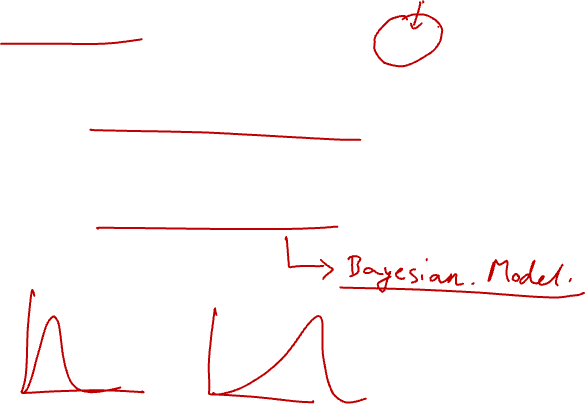 Bayesian. Model.